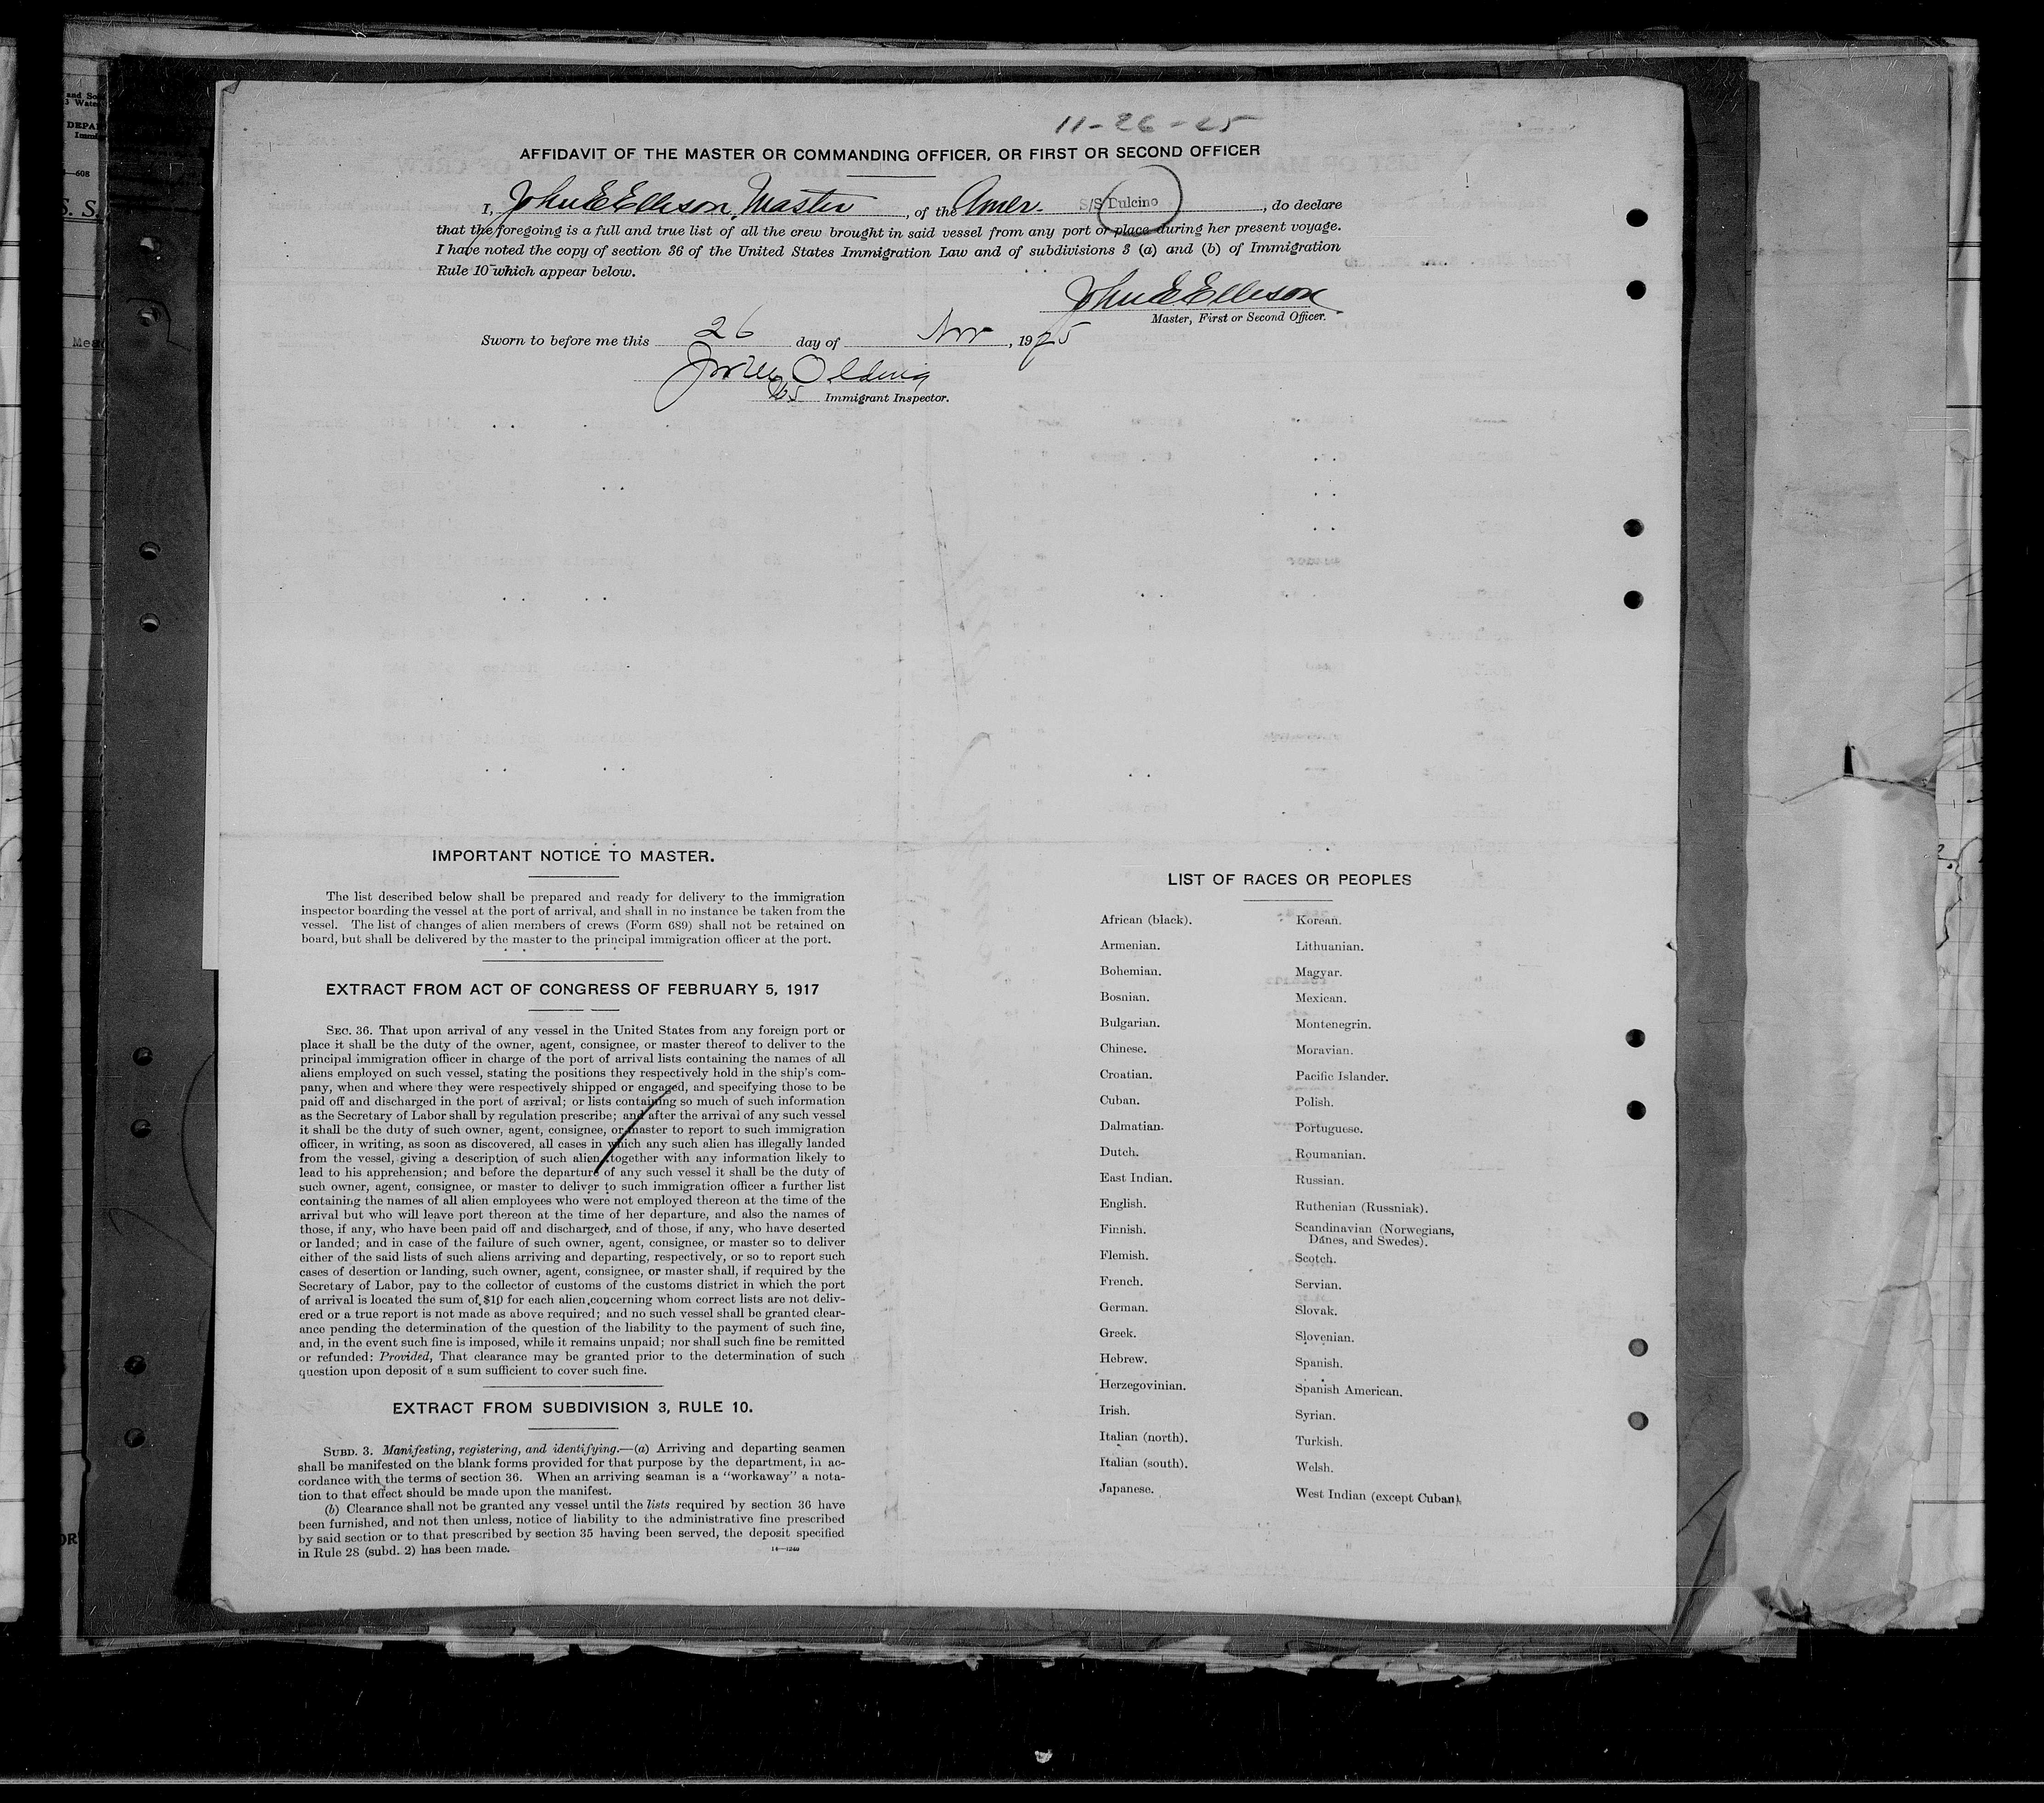 11-26-25
AFFIDAVIT OF THE MASTER OR COMMANDING OFFICER, OR FIRST OR SECOND OFFICER
I, John E Ellison, Master, of the Amer. S/S Dulcino, do declare
that the foregoing is a full and true list of all the crew brought in said vessel from any port or place during her present voyage.
I have noted the copy of section 36 of the United States Immigration Law and of subdivisions 3 (a) and (b) of Immigration
Rule 10 which appear below.
John E Ellison
Master, First or Second Officer.
Sworn to before me this 26 day of Nov, 1925
Olding
Immigrant Inspector.
IMPORTANT NOTICE TO MASTER.
The list described below shall be prepared and ready for delivery to the immigration
inspector boarding the vessel at the port of arrival, and shall in no instance be taken from the
vessel. The list of changes of alien members of crews (Form 689) shall not be retained on
board, but shall be delivered by the master to the principal immigration officer at the port.
EXTRACT FROM ACT OF CONGRESS OF FEBRUARY 5, 1917
SEC. 36. That upon arrival of any vessel in the United States from any foreign port or
place it shall be the duty of the owner, agent, consignee, or master thereof to deliver to the
principal immigration officer in charge of the port of arrival lists containing the names of all
aliens employed on such vessel, stating the positions they respectively hold in the ship's com-
pany, when and where they were respectively shipped or engaged, and specifying those to be
paid off and discharged in the port of arrival; or lists containing so much of such information
as the Secretary of Labor shall by regulation prescribe; and after the arrival of any such vessel
it shall be the duty of such owner, agent, consignee, or master to report to such immigration
officer, in writing, as soon as discovered, all cases in which any such alien has illegally landed
from the vessel, giving a description of such alien, together with any information likely to
lead to his apprehension; and before the departure of any such vessel it shall be the duty of
such owner, agent, consignee, or master to deliver to such immigration officer a further list
containing the names of all alien employees who were not employed thereon at the time of the
arrival but who will leave port thereon at the time of her departure, and also the names of
those, if any, who have been paid off and discharged, and of those, if any, who have deserted
or landed; and in case of the failure of such owner, agent, consignee, or master so to deliver
either of the said lists of such aliens arriving and departing, respectively, or so to report such
cases of desertion or landing, such owner, agent, consignee, or master shall, if required by the
Secretary of Labor, pay to the collector of customs of the customs district in which the port
of arrival is located the sum of $10 for each alien concerning whom correct lists are not deliv-
ered or a true report is not made as above required; and no such vessel shall be granted clear-
ance pending the determination of the question of the liability to the payment of such fine,
and, in the event such fine is imposed, while it remains unpaid; nor shall such fine be remitted
or refunded: Provided, That clearance may be granted prior to the determination of such
question upon deposit of a sum sufficient to cover such fine.
EXTRACT FROM SUBDIVISION 3, RULE 10.
SUBD. 3. Manifesting, registering, and identifying.—(a) Arriving and departing seamen
shall be manifested on the blank forms provided for that purpose by the department, in ac-
cordance with the terms of section 36. When an arriving seaman is a "workaway" a nota-
tion to that effect should be made upon the manifest.
(b) Clearance shall not be granted any vessel until the lists required by section 36 have
been furnished, and not then unless, notice of liability to the administrative fine prescribed
by said section or to that prescribed by section 35 having been served, the deposit specified
in Rule 28 (subd. 2) has been made.
14—1240
LIST OF RACES OR PEOPLES
African (black).
Armenian.
Bohemian.
Bosnian.
Bulgarian.
Chinese.
Croatian.
Cuban.
Dalmatian.
Dutch.
East Indian.
English.
Finnish.
Flemish.
French.
German.
Greek.
Hebrew.
Herzegovinian.
Irish.
Italian (north).
Italian (south).
Japanese.
Korean.
Lithuanian.
Magyar.
Mexican.
Montenegrin.
Moravian.
Pacific Islander.
Polish.
Portuguese.
Roumanian.
Russian.
Ruthenian (Russniak).
Scandinavian (Norwegians,
Danes, and Swedes).
Scotch.
Servian.
Slovak.
Slovenian.
Spanish.
Spanish American.
Syrian.
Turkish.
Welsh.
West Indian (except Cuban).